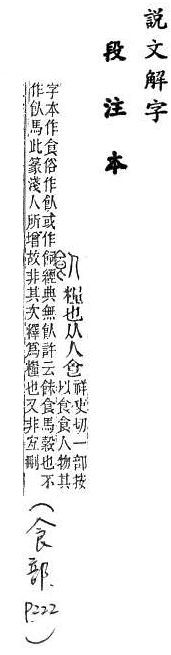 說文解字
段注本
飤 糧也从人食
祥吏切一部按
以食食人物其
字本作食俗作飤或作飼經典無飤許云䬴食馬穀也不
作飤馬此篆淺人所增故非其次釋爲糧也又非宜刪
(食部. P222)